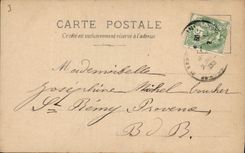 CARTE POSTALE
Ce côté est exclusivement réservé à l'adresse
Mademoiselle
Joséphine Michel
St Rémy Provence
B d R.